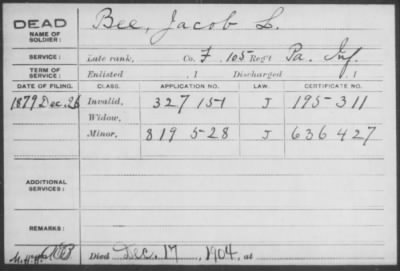 DEAD Bee, Jacob L.
NAME OF SOLDIER:
SERVICE: Late rank, Co. F, 105 Reg't Pa. Inf.
TERM OF SERVICE: Enlisted , 1 Discharged , 1
DATE OF FILING. CLASS. APPLICATION NO. LAW. CERTIFICATE NO.
1879 Dec. 26 Invalid, 327 151 J 195-311
Widow,
Minor, 819 528 J 636 427
ADDITIONAL SERVICES:
REMARKS:
Died Dec. 17, 1904, at